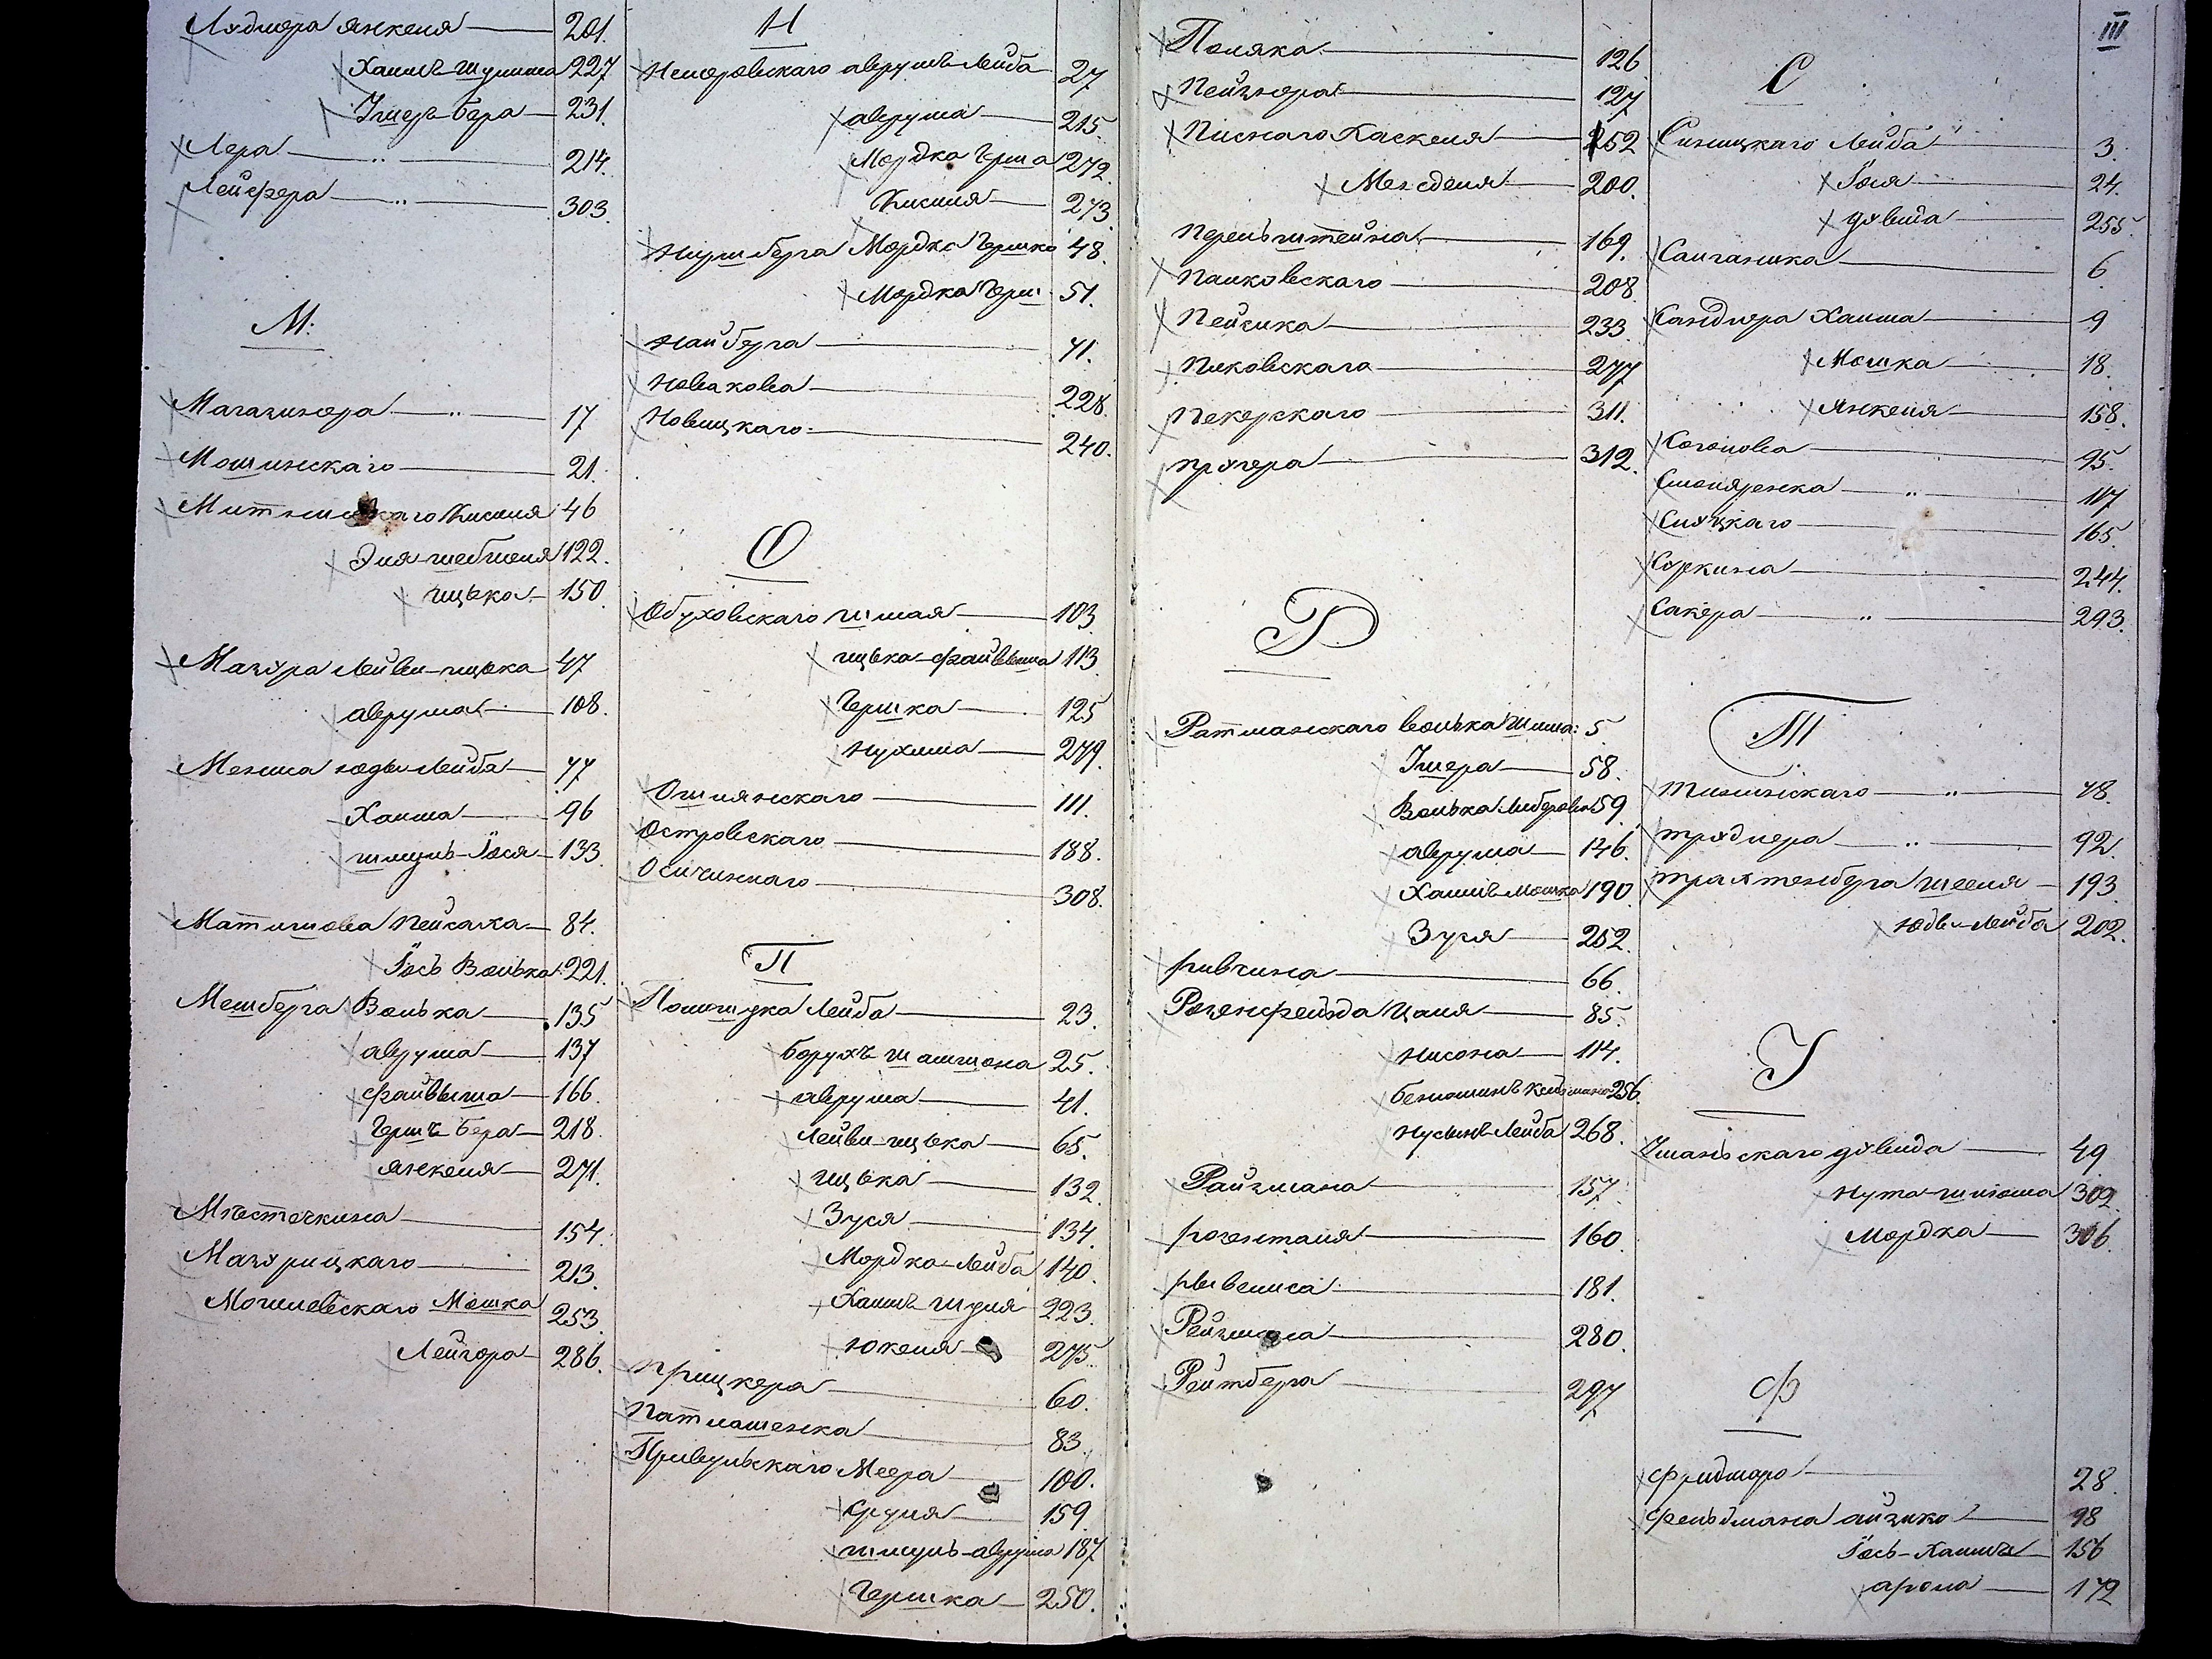 Лядмера Янкеля 201.
Хаимъ Шулима 227
Ічмеръ-Бера 231.
Лера 214.
Лейфера 303.
М.
Магазинера 17
Мошинскаго 21.
46
Эля-Шевшеля 122.
Ицька 150
Мазура Лейви-Ицька 47
Аврума 108.
Мениса Юдви Лейба 77
Хаима 96
Шмуль-Іося 133.
Матишова Пейсаха 84.
Іось Волька 221.
Мешберга Волька 135
Аврума 137
Файвыша 166.
Гершъ Бера 218.
Янкеля 271.
Мѣсточкина 154.
Мазурицкаго 213.
Могилевскаго Мошка 253.
Лейзера 286.
Н
Немеровскаго Аврумъ Лейба 27
Аврума 215.
Мордка Герша 272.
Кисиля 273
Ниренберга Мордко Гершко 48.
Мордка Герш 51.
Найберга 71.
Новакова 228.
Новицкаго 240.
О
Обуховскаго Шмая 103.
Ицька-Файвыша 113
Гершка 125
Нухима 279.
Ошлянскаго 111.
Островскаго 188.
Осичинкаго 308.
П
Полошука Лейба 23.
Борухъ Шашиона 25.
Аврума 41.
Лейви-Ицька 65.
Ицька 132.
Зуся 134.
Мордко-Лейба 140.
Хаимъ Шуля 223.
Юкеля 275.
Прицкера 60.
Патлашенка 83.
Привульскаго Меера 100.
Сруля 159.
Шмуль-Аврума 187
Гершка 250.
III
Поляка 126
Пейзнера 127
Писнаго Хаскеля 252
Менделя 200.
Перельштейна 169.
Панковскаго 208.
Пейсика 233.
Пиковскаго 277
Печерскаго 311.
Пругера 312.
Р
Ратманскаго Волька Шлима: 5
Ічмера 58.
Волька Лейбовича 59.
Аврума 146.
Хаимъ-Мошка 190.
Зуся 252.
Ривчина 66.
Розенфельда Цаля 85.
Нисона 114.
256.
Нусынъ-Лейба 268.
Райзмана 157.
Розенталя 160.
Рывелиса 181.
Рейзмана 280.
Рейтберга 297
С
Синицкаго Лейба 3.
Іося 24.
Дувида 255.
Саиганика 6.
Сандлера Хаима 9
Мошка 18.
Янкеля 158.
Соголова 95.
Смоляренка 117
Слуцкаго 165.
Соркина 244.
Сакера 293.
Т
Тилинскаго 78.
Трудлера 92.
Трахтенберга Шееля 193
Юдви-Лейба 202.
У
Уманьскаго Дувида 49.
Нута-Шлиома 302.
Мордка 306.
Ф
Фридмаро 28.
Фельдмана Айзико 98
Іось-Хаимъ 156
Арона 172